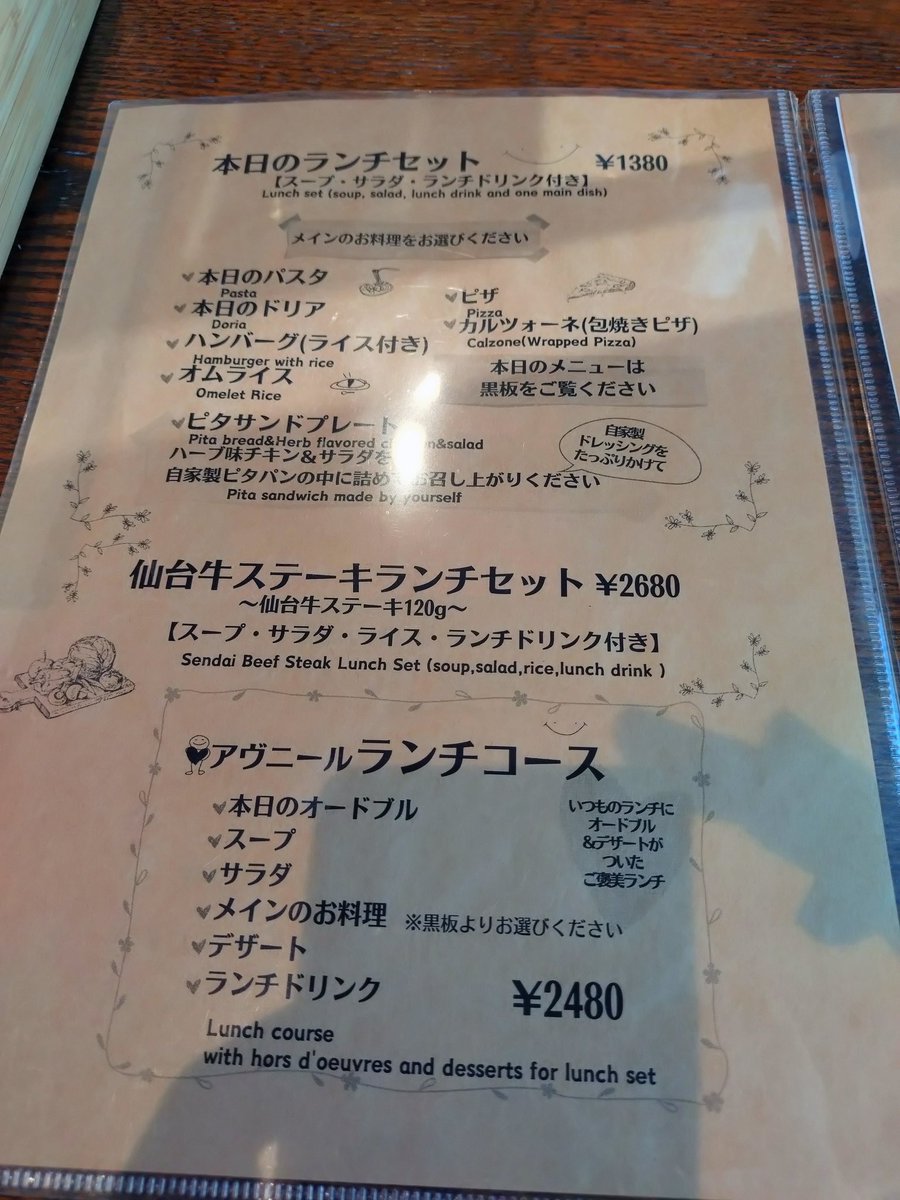 本日のランチセット ¥1380
【スープ・サラダ・ランチドリンク付き】
Lunch set (soup, salad, lunch drink and one main dish)
メインのお料理をお選びください
本日のパスタ
Pasta
本日のドリア
Doria
ハンバーグ(ライス付き)
Hamburger with rice
オムライス
Omelet Rice
ピザ
Pizza
カルツォーネ(包焼きピザ)
Calzone(Wrapped Pizza)
本日のメニューは
黒板をご覧ください
ピタサンドプレート
Pita bread&Herb flavored &salad
ハーブ味チキン&サラダを
自家製ピタパンの中に詰めてお召し上がりください
Pita sandwich made by yourself
自家製
ドレッシングを
たっぷりかけて
仙台牛ステーキランチセット ¥2680
～仙台牛ステーキ120g～
【スープ・サラダ・ライス・ランチドリンク付き】
Sendai Beef Steak Lunch Set (soup,salad,rice,lunch drink )
アヴニールランチコース
本日のオードブル
スープ
サラダ
メインのお料理 ※黒板よりお選びください
デザート
ランチドリンク
いつものランチに
オードブル
&デザートが
ついた
ご褒美ランチ
¥2480
Lunch course
with hors d'oeuvres and desserts for lunch set